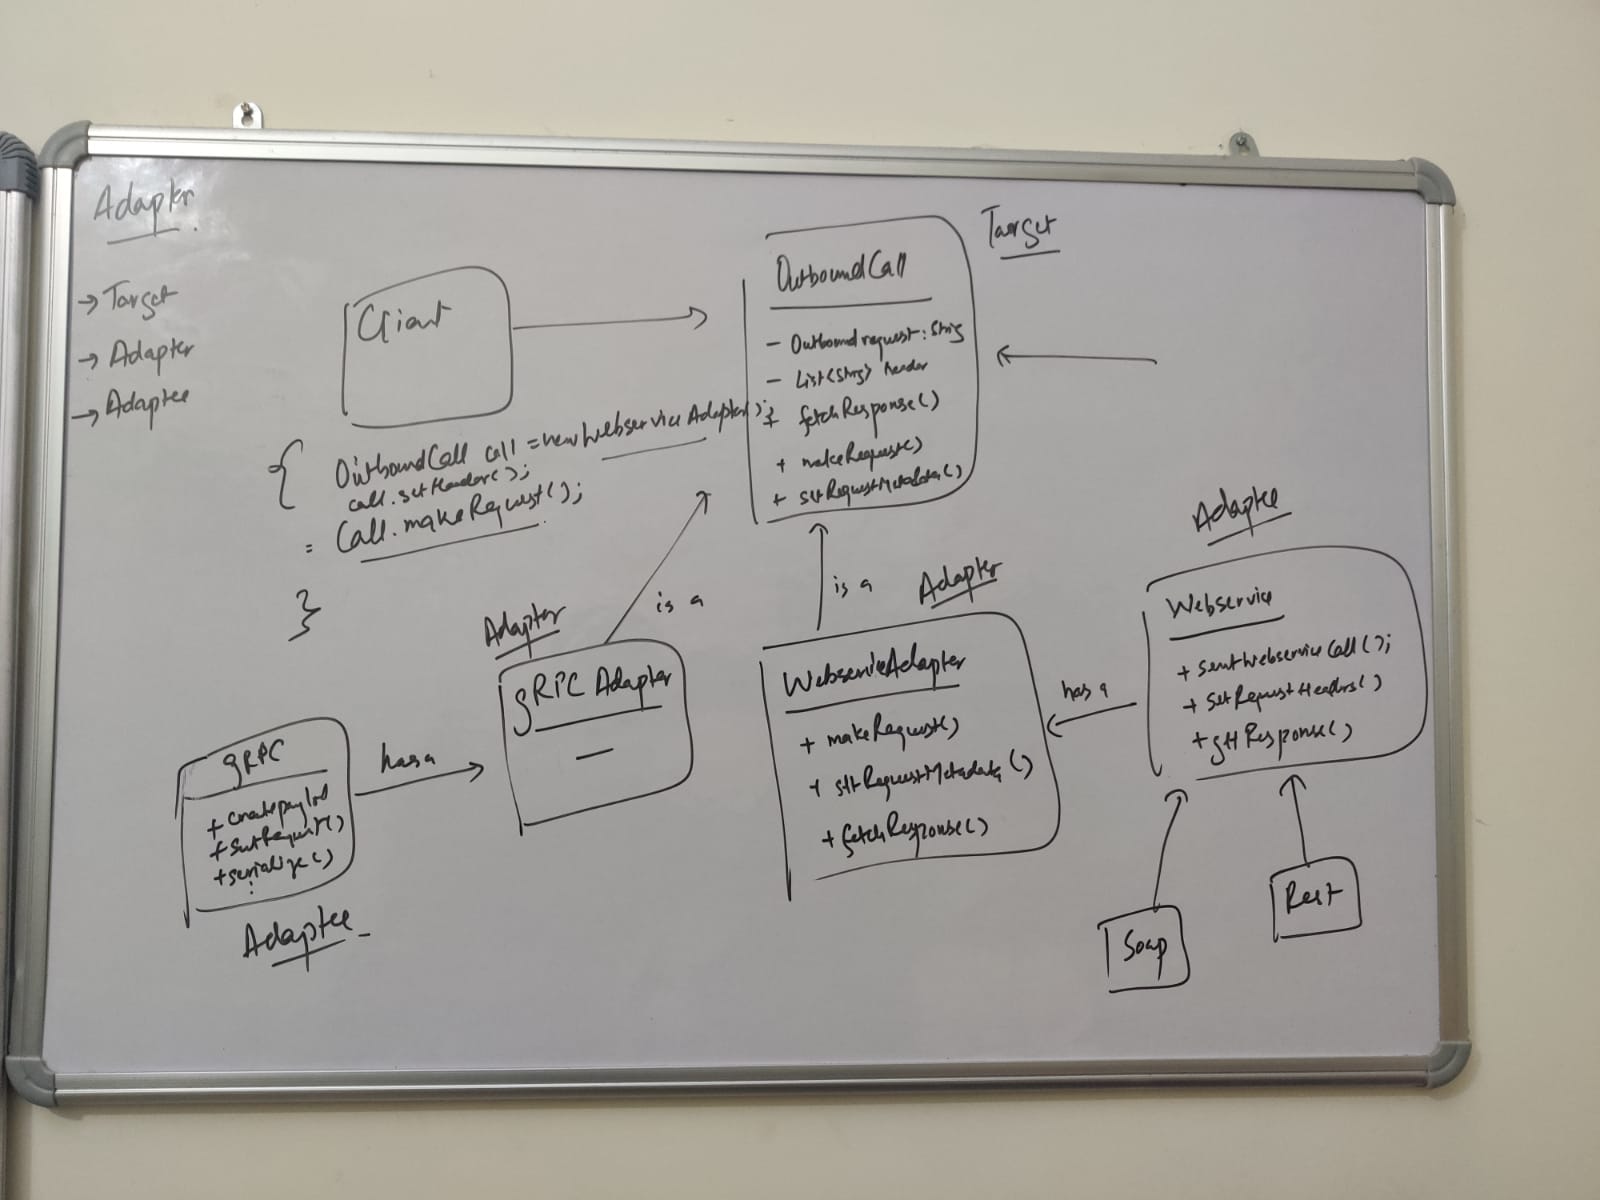 Adapter
→ Target
→ Adapter
→ Adaptee
Client
{
OutboundCall call = new WebserviceAdapter();
call.setHeader();
= Call.makeRequest();
}
Target
OutboundCall
- Outboundrequest: String
- List<String> header
+ fetchResponse()
+ makeRequest()
+ setRequestMetadata()
is a
is a
Adapter
gRPC Adapter
—
has a
gRPC
+ createpayload
+ sentRequest()
+ serialize()
:
Adaptee
Adapter
WebserviceAdapter
+ makeRequest()
+ setRequestMetadata()
+ fetchResponse()
has a
Adaptee
Webservice
+ sentWebserviceCall();
+ setRequestHeaders()
+ getResponse()
Soap
Rest